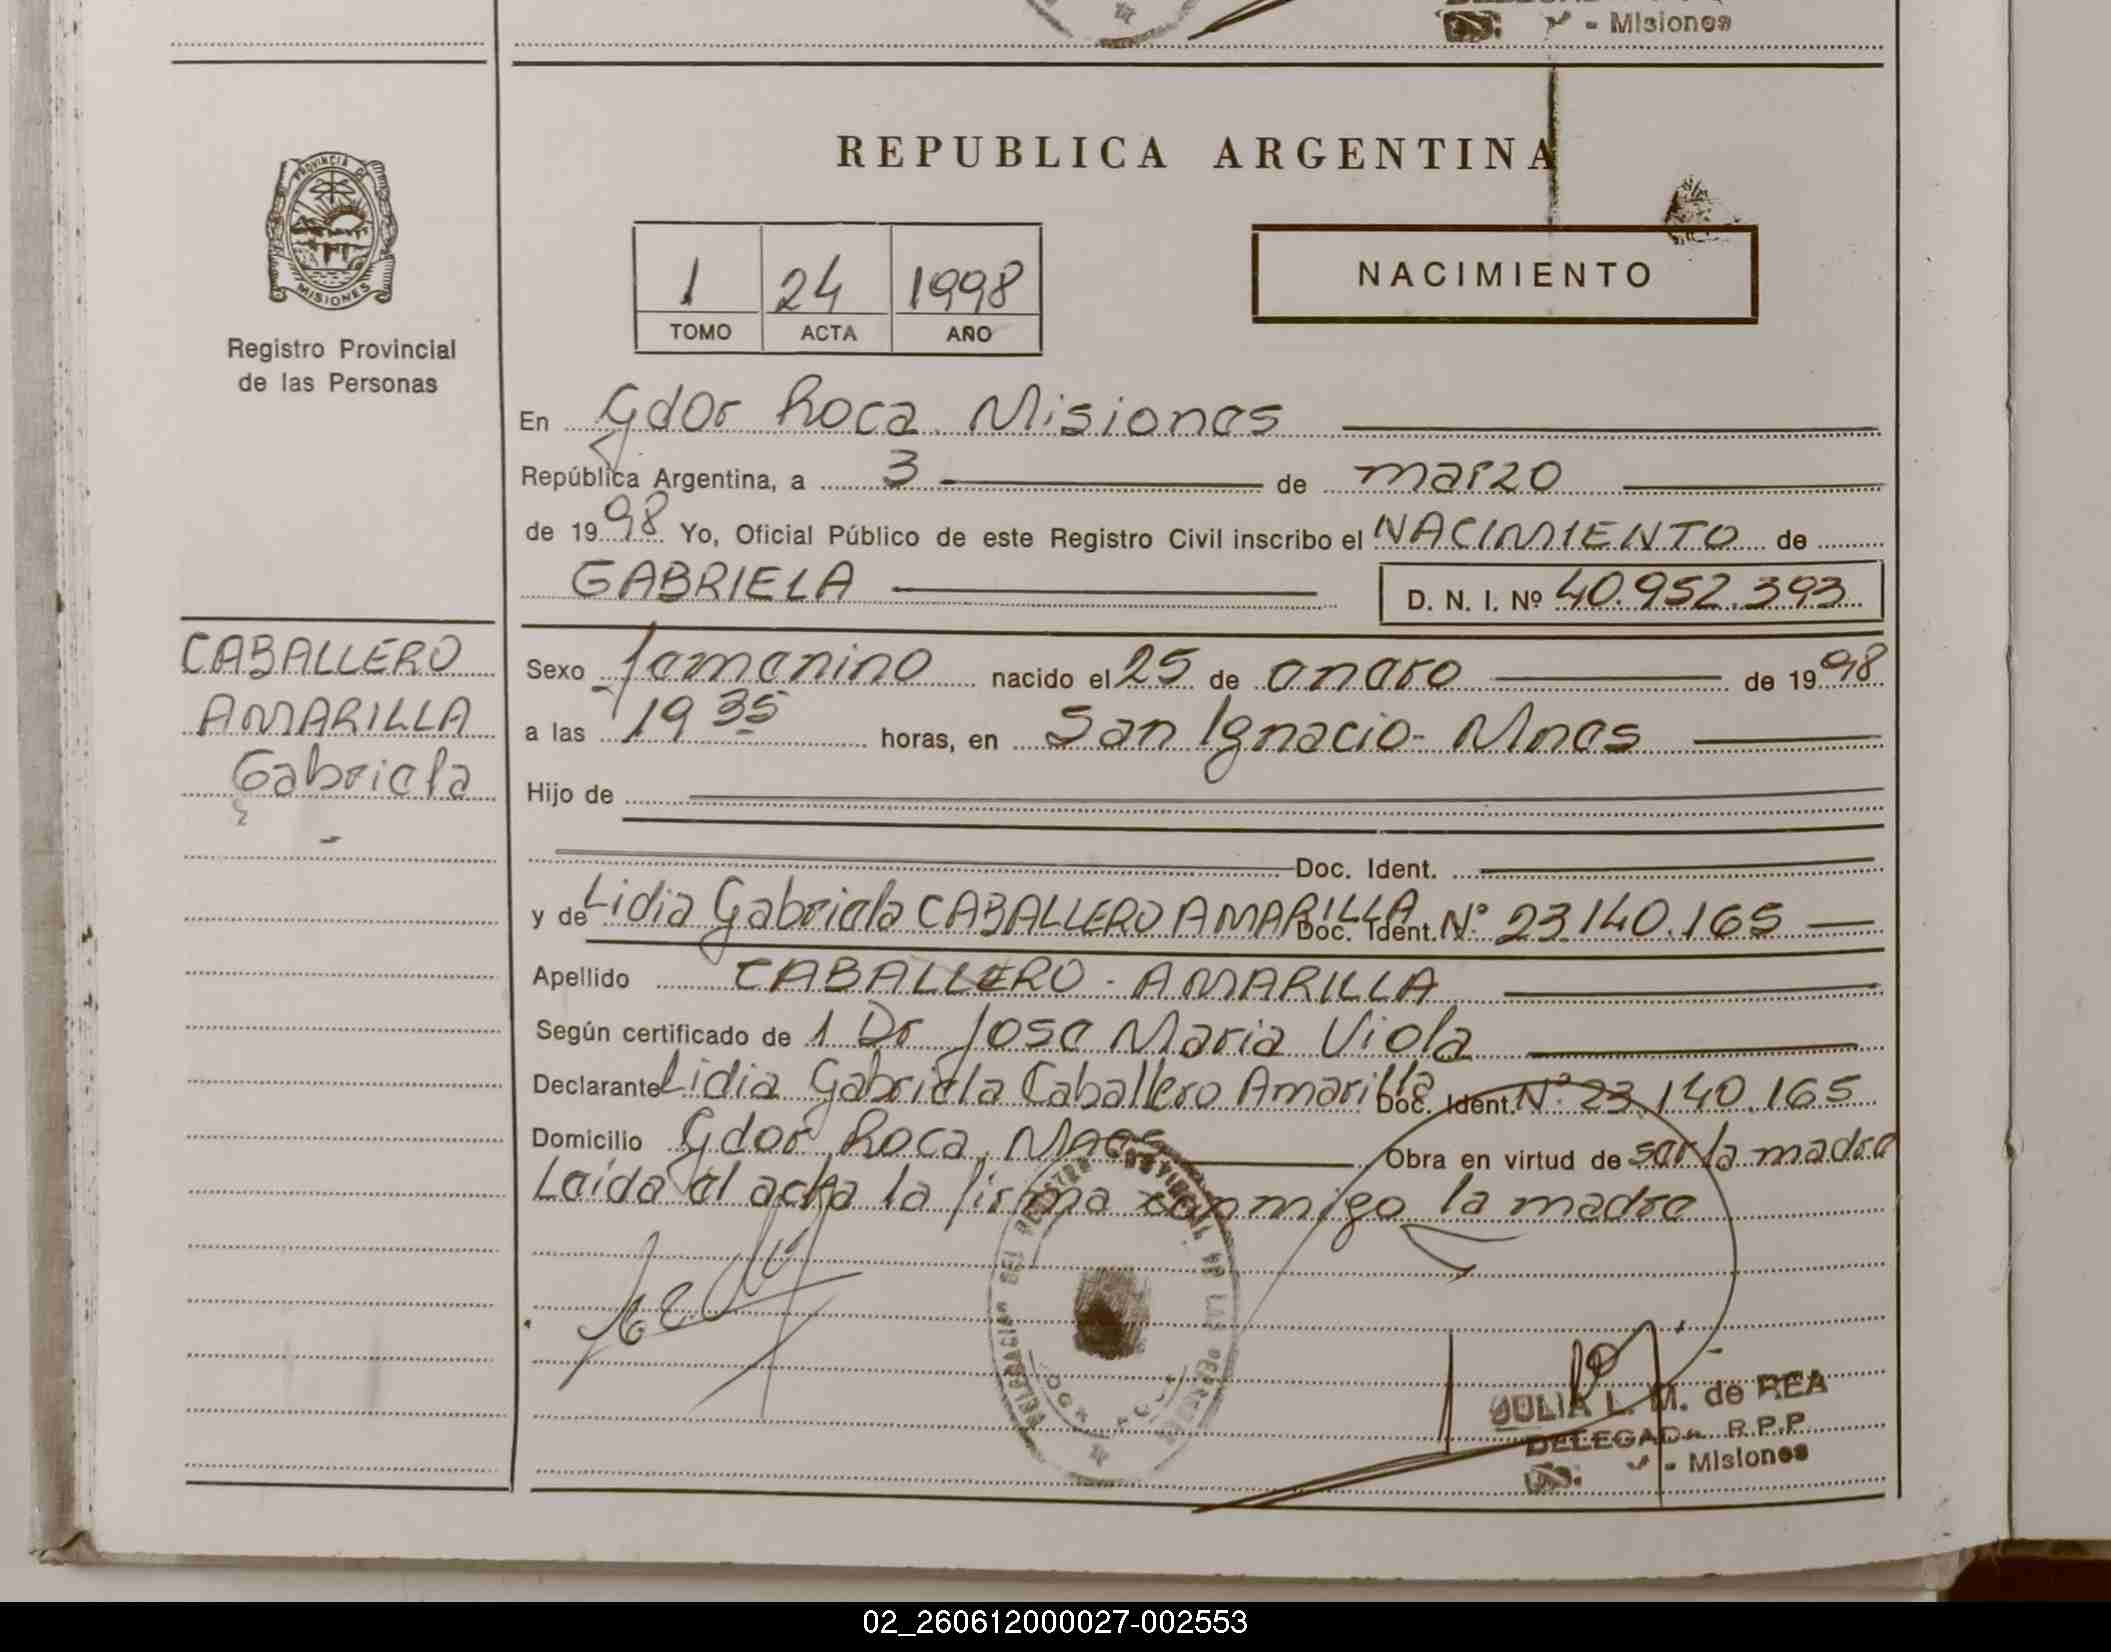 - Misiones
REPUBLICA ARGENTINA
PROVINCIA DE
MISIONES
Registro Provincial
de las Personas
1 24 1998
TOMO ACTA AÑO
NACIMIENTO
En Gdor Roca Misiones
República Argentina, a 3 de marzo
de 1998 Yo, Oficial Público de este Registro Civil inscribo el NACIMIENTO de
GABRIELA D. N. I. Nº 40.952.393
CABALLERO
AMARILLA
Gabriela
Sexo femenino nacido el 25 de enero de 1998
a las 19 35 horas, en San Ignacio - Mnes
Hijo de
Doc. Ident.
y de Lidia Gabriela CABALLERO AMARILLA Doc. Ident. Nº 23.140.165
Apellido CABALLERO - AMARILLA
Según certificado de 1 Dr Jose Maria Viola
Declarante Lidia Gabriela Caballero Amarilla Doc. Ident. Nº 23.140.165
Domicilio Gdor Roca, Mnes Obra en virtud de ser la madre
Leída el acta la firma conmigo la madre
DELEGACION DEL REGISTRO PROVINCIAL DE LAS PERSONAS
JULIA L. M. de REA
DELEGADA R.P.P.
- Misiones
02_260612000027-002553